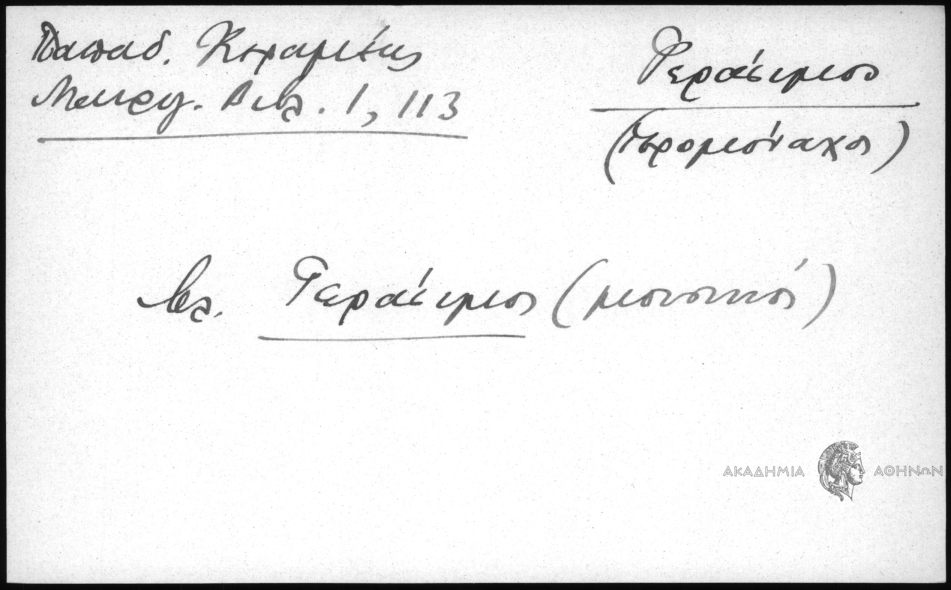 Παπαδ. Κεραμεύς
Μαυρογ. Βιβλ. 1, 113
Γεράσιμος
(ιερομόναχος)
βλ. Γεράσιμος (μουσικός)
ΑΚΑΔΗΜΙΑ ΑΘΗΝΩΝ